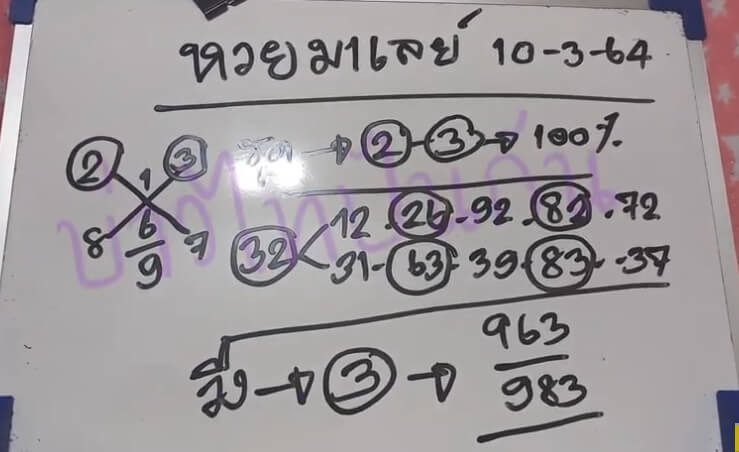 หวยมาเลย์ 10-3-64
รูด → 2-3 → 100%
2 1 3
8 6 7
9
12-26-92-82-72
32 <
31-63-39-83-37
วิ่ง → 3 → 963
983